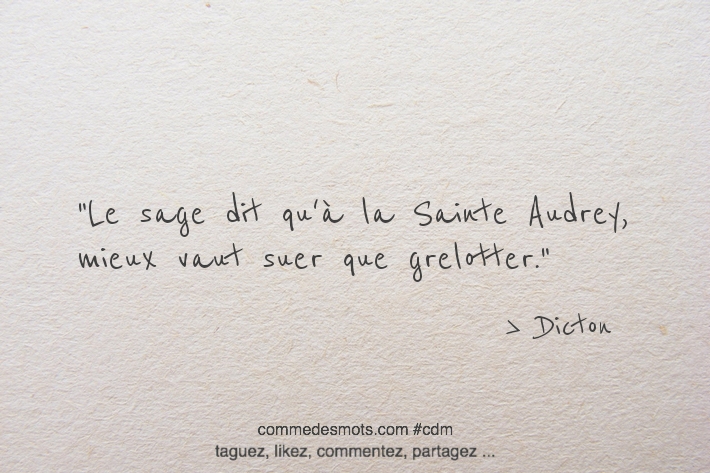 "Le sage dit qu'à la Sainte Audrey,
mieux vaut suer que grelotter."
> Dicton
commedesmots.com #cdm
taguez, likez, commentez, partagez ...